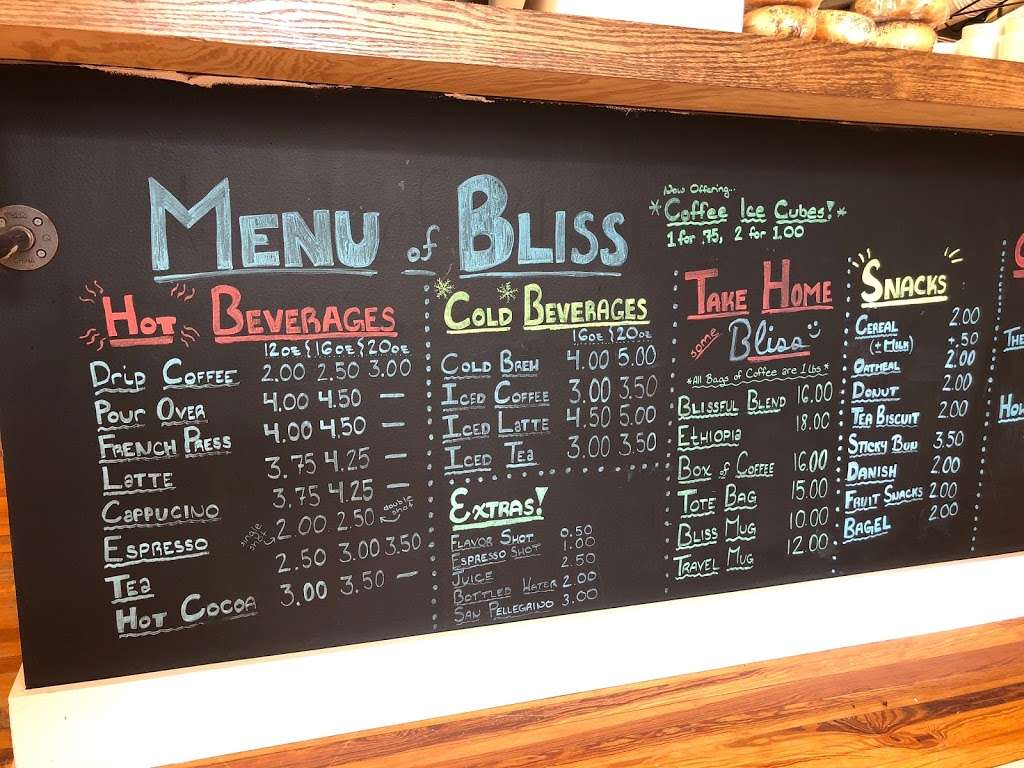 MENU of BLISS
Now Offering...
*Coffee Ice Cubes!*
1 for .75, 2 for 1.00
HOT BEVERAGES
12oz 16oz 20oz
DRIP COFFEE 2.00 2.50 3.00
POUR OVER 4.00 4.50 —
FRENCH PRESS 4.00 4.50 —
LATTE 3.75 4.25 —
CAPPUCINO 3.75 4.25 —
ESPRESSO single shot 2.00 2.50 double shot
TEA 2.50 3.00 3.50
HOT COCOA 3.00 3.50 —
COLD BEVERAGES
16oz 20oz
COLD BREW 4.00 5.00
ICED COFFEE 3.00 3.50
ICED LATTE 4.50 5.00
ICED TEA 3.00 3.50
EXTRAS!
FLAVOR SHOT 0.50
ESPRESSO SHOT 1.00
JUICE 2.50
BOTTLED WATER 2.00
SAN PELLEGRINO 3.00
TAKE HOME
some Bliss
*All Bags of Coffee are 1 lbs*
BLISSFUL BLEND 16.00
ETHIOPIA 18.00
BOX of COFFEE 16.00
TOTE BAG 15.00
BLISS MUG 10.00
TRAVEL MUG 12.00
SNACKS
CEREAL 2.00
(+ MILK) +.50
OATMEAL 2.00
DONUT 2.00
TEA BISCUIT 2.00
STICKY BUN 3.50
DANISH 2.00
FRUIT SNACKS 2.00
BAGEL 2.00